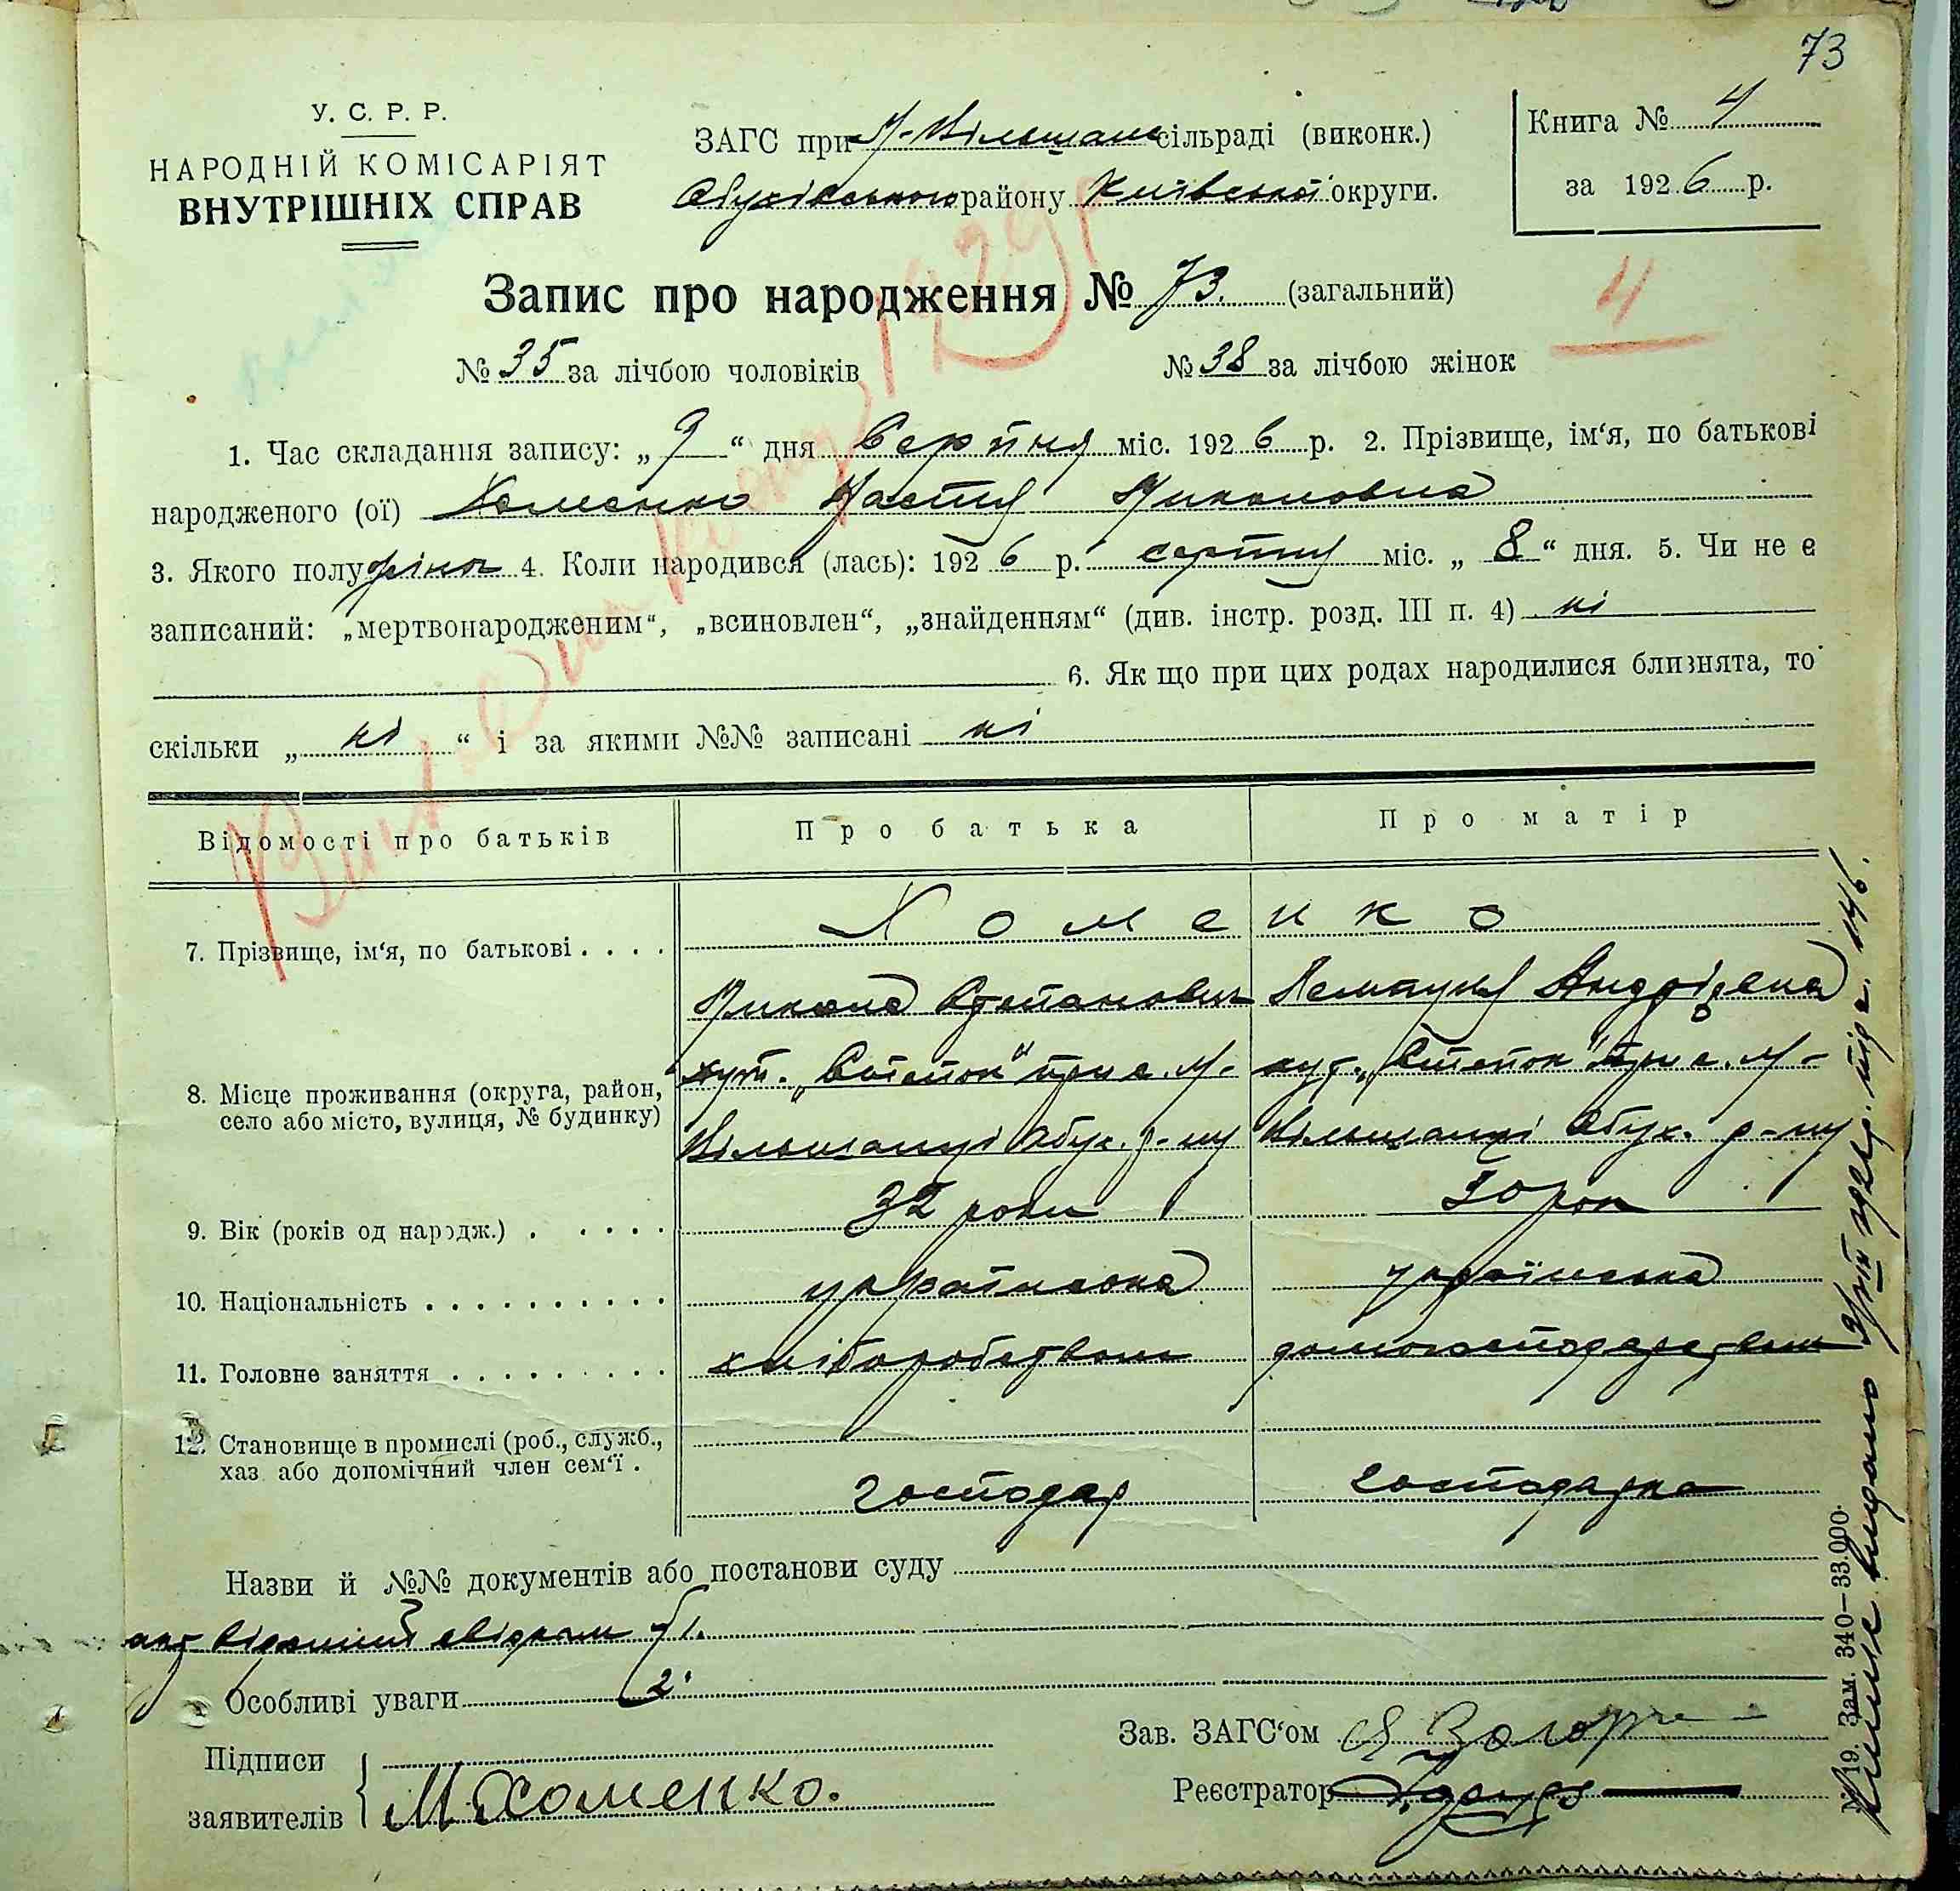 73
У. С. Р. Р.
НАРОДНІЙ КОМІСАРІЯТ
ВНУТРІШНІХ СПРАВ
ЗАГС при М-Вільшан сільраді (виконк.)
Обухівського району Київської округи.
Книга № 4
за 1926 р.
Запис про народження № 73. (загальний)
4
№ 35 за лічбою чоловіків № 38 за лічбою жінок
1. Час складання запису: „9“ дня серпня міс. 1926 р. 2. Прізвище, ім‘я, по батькові
народженого (ої) Хоменко Настя Миколовна
3. Якого полу жіноч 4. Коли народився (лась): 1926 р. серпня міс. „8“ дня. 5. Чи не є
записаний: „мертвонародженим“, „всиновлен“, „знайденням“ (див. інстр. розд. III п. 4) ні
6. Як що при цих родах народилися близнята, то
скільки „ ні “ і за якими №№ записані ні
Відомості про батьків Про батька Про матір
7. Прізвище, ім‘я, по батькові . . . . Хоменко
Микола Степанович Андрієвна
8. Місце проживання (округа, район,
село або місто, вулиця, № будинку)
хут. „Степок“ при с. М- хут. „Степок“ при с. М-
Вільшанці Обух. р-ну Вільшанці Обух. р-ну
9. Вік (років од народж.) . . . . . 32 роки 30 рок
10. Національність . . . . . . . . . . українська українська
11. Головне заняття . . . . . . . . . хліборобством домогосподарством
12. Становище в промислі (роб., служб.,
хаз. або допомічний член сем‘ї .
господар господарка
Назви й №№ документів або постанови суду
акт свідками 1.
2.
Особливі уваги
Зав. ЗАГС‘ом
Підписи
заявителів М Хоменко.
Реєстратор
№ 19. Зам. 340—33.000.
видано